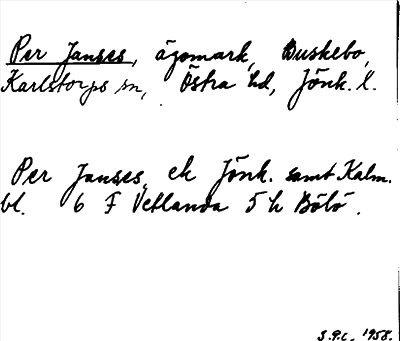 Per Janses, ägomark, Buskebo,
Karlstorps sn, Östra hd, Jönk. l.
Per Janses, ek Jönk. samt Kalm.
bl. 6 F Vetlanda 5 h Bölö.
S.P.C. 1958.